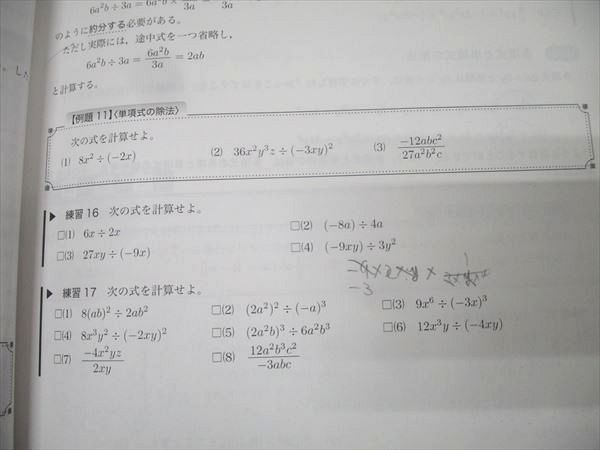 6a²b ÷ 3a = 6a²b ×
3a
3a
のように約分する必要がある。
ただし実際には，途中式を一つ省略し，
6a²b ÷ 3a = 6a²b/3a = 2ab
と計算する。
【例題 11】〈単項式の除法〉
次の式を計算せよ。
(1) 8x² ÷ (−2x) (2) 36x²y³z ÷ (−3xy)² (3) −12abc²/27a²b²c
練習 16 次の式を計算せよ。
□(1) 6x ÷ 2x □(2) (−8a) ÷ 4a
□(3) 27xy ÷ (−9x) □(4) (−9xy) ÷ 3y²
−3
練習 17 次の式を計算せよ。
□(1) 8(ab)² ÷ 2ab² □(2) (2a²)² ÷ (−a)³ □(3) 9x⁶ ÷ (−3x)³
□(4) 8x³y² ÷ (−2xy)² □(5) (2a²b)³ ÷ 6a²b³ □(6) 12x³y ÷ (−4xy)
□(7) −4x²yz/2xy □(8) 12a²b³c²/−3abc